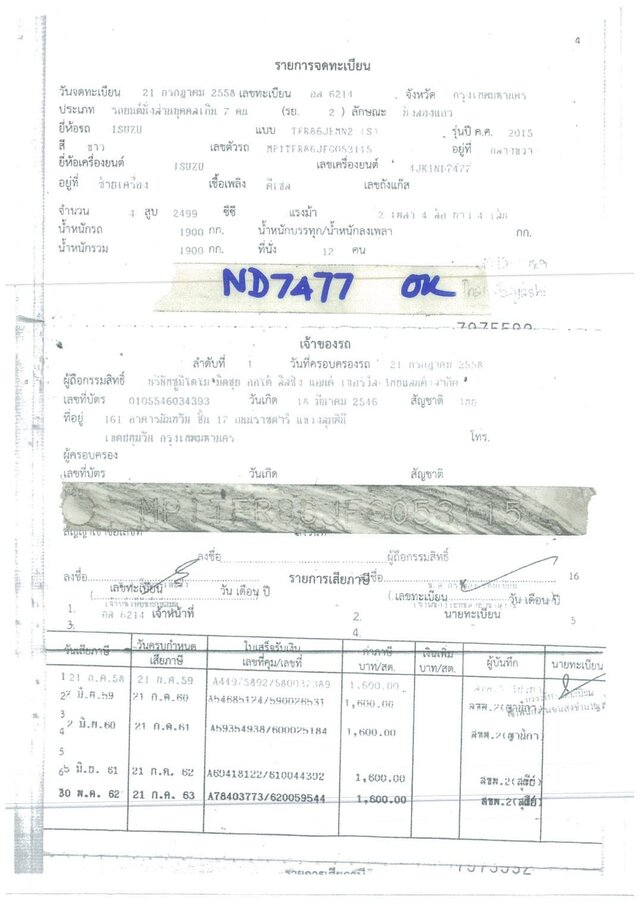 4
รายการจดทะเบียน
วันจดทะเบียน 21 กรกฎาคม 2558 เลขทะเบียน อล 6214 จังหวัด กรุงเทพมหานคร
ประเภท รถยนต์นั่งส่วนบุคคลเกิน 7 คน (รย. 2 ) ลักษณะ นั่งสองแถว
ยี่ห้อรถ ISUZU แบบ TFR86JEMN2 (S) รุ่นปี ค.ศ. 2015
สี ขาว เลขตัวรถ MP1TFR86JFG053115 อยู่ที่ กลางขวา
ยี่ห้อเครื่องยนต์ ISUZU เลขเครื่องยนต์ 4JK1ND7477
อยู่ที่ ซ้ายเครื่อง เชื้อเพลิง ดีเซล เลขถังแก๊ส
จำนวน 4 สูบ 2499 ซีซี แรงม้า 2 เพลา 4 ล้อ ยาง 4 เส้น
น้ำหนักรถ 1900 กก. น้ำหนักบรรทุก/น้ำหนักลงเพลา กก.
น้ำหนักรวม 1900 กก. ที่นั่ง 12 คน
ND7477 OK
เจ้าของรถ
ลำดับที่ 1 วันที่ครอบครองรถ 21 กรกฎาคม 2558
ผู้ถือกรรมสิทธิ์
เลขที่บัตร 0105546034393 วันเกิด 18 มีนาคม 2546 สัญชาติ ไทย
ที่อยู่ 161 อาคารนันทวัน ชั้น 17 ถนนราชดำริ แขวงลุมพินี
เขตปทุมวัน กรุงเทพมหานคร โทร.
ผู้ครอบครอง
เลขที่บัตร วันเกิด สัญชาติ
MP1TFR86JFG053115
ลงชื่อ ผู้ถือกรรมสิทธิ์
ลงชื่อ รายการเสียภาษี 16
เลขทะเบียน วัน เดือน ปี ( เลขทะเบียน วัน เดือน ปี
1. อล 6214 เจ้าหน้าที่ 2. นายทะเบียน 5
3. 4.
วันเสียภาษี วันครบกำหนดเสียภาษี ใบเสร็จรับเงิน เล่มที่คุม/เลขที่ ค่าภาษี บาท/สต. เงินเพิ่ม บาท/สต. ผู้บันทึก นายทะเบียน
1 21 ก.ค.58 21 ก.ค.59 A44975892/580037389 1,600.00
2 2 มิ.ย.59 21 ก.ค.60 A54685124/590026531 1,600.00 สขพ.2
3
4 2 มิ.ย.60 21 ก.ค.61 A59354938/600025184 1,600.00 สขพ.2
5
6 5 มิ.ย. 61 21 ก.ค. 62 A69418122/610044392 1,600.00 สขพ.2(สุลีย์)
30 พ.ค. 62 21 ก.ค. 63 A78403773/620059544 1,600.00 สขพ.2(สุลีย์)